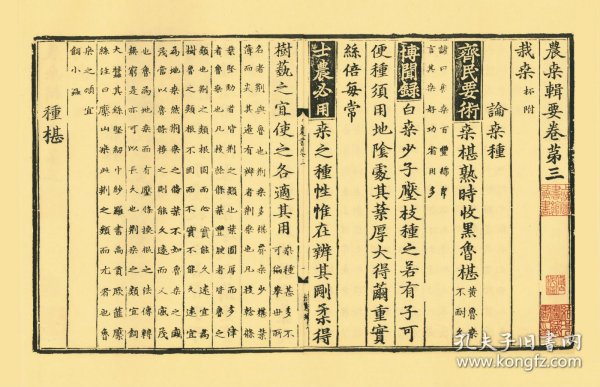 農桑輯要卷第三
栽桑 柘附
論桑種
齊民要術 桑椹熟時收黑魯椹 黃魯桑不耐久
諺曰魯桑百豐綿帛
言其桑好功省用多
博聞錄 白桑少子壓枝種之若有子可
便種須用地陰處其葉厚大得繭重實
絲倍每常
士農必用 桑之種性惟在辨其剛柔得
樹藝之宜使之各適其用 桑種甚多不可徧舉世所
名者荆與魯也荆桑多椹魯桑少椹葉
薄而尖其邊有瓣者荆桑也凡枝幹條
葉堅勁者皆荆之類也葉圓厚而多津
者魯桑也凡枝幹條葉豐腴者皆魯之
類也荆之類根固而心實能久遠宜爲
樹魯之類根不固而心不實不能久遠宜爲
地桑然荆桑之條葉不如魯桑之盛
茂當以魯條接之則能久遠而又盛茂
也魯爲地桑而有壓條換根之法傳轉
無窮是亦可以長久也荆桑之類宜飼
大蠶其絲堅韌中紗羅書
絲注曰檿山桑此荆之類而尤者也魯
桑之類宜
飼小蠶
種椹
孔夫子旧书网
www.kongfz.com